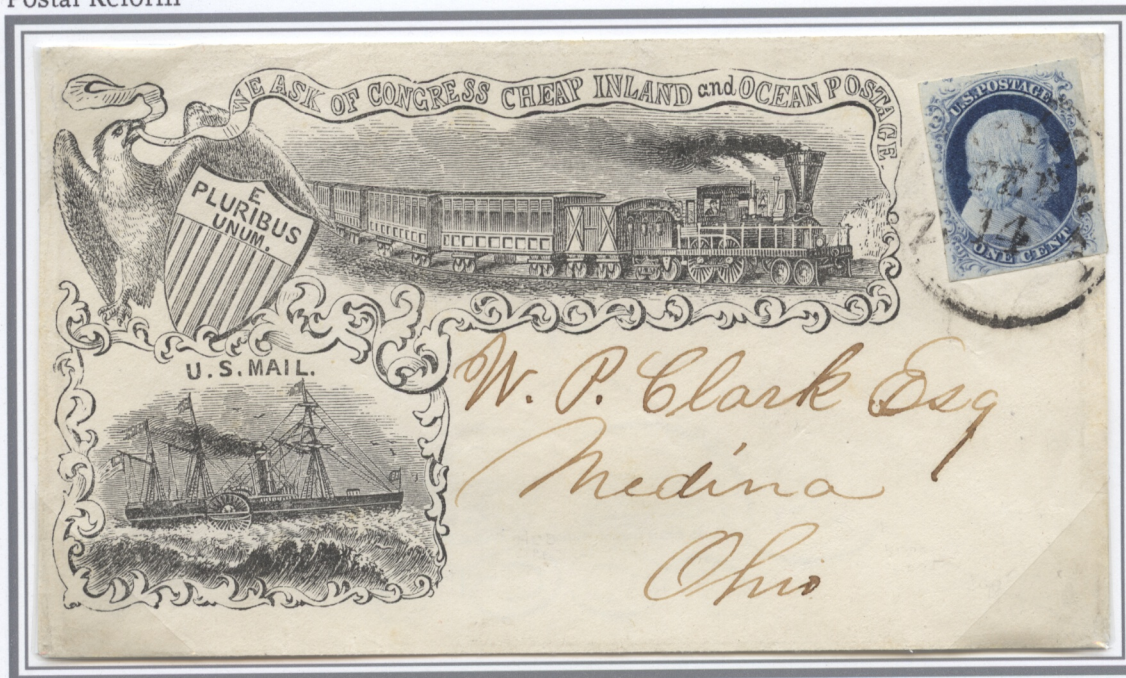 Postal Reform
WE ASK OF CONGRESS CHEAP INLAND and OCEAN POSTAGE.
E
PLURIBUS
UNUM.
U.S. POSTAGE
FEB
14
ONE CENT
U.S. MAIL.
W. P. Clark Esq
Medina
Ohio